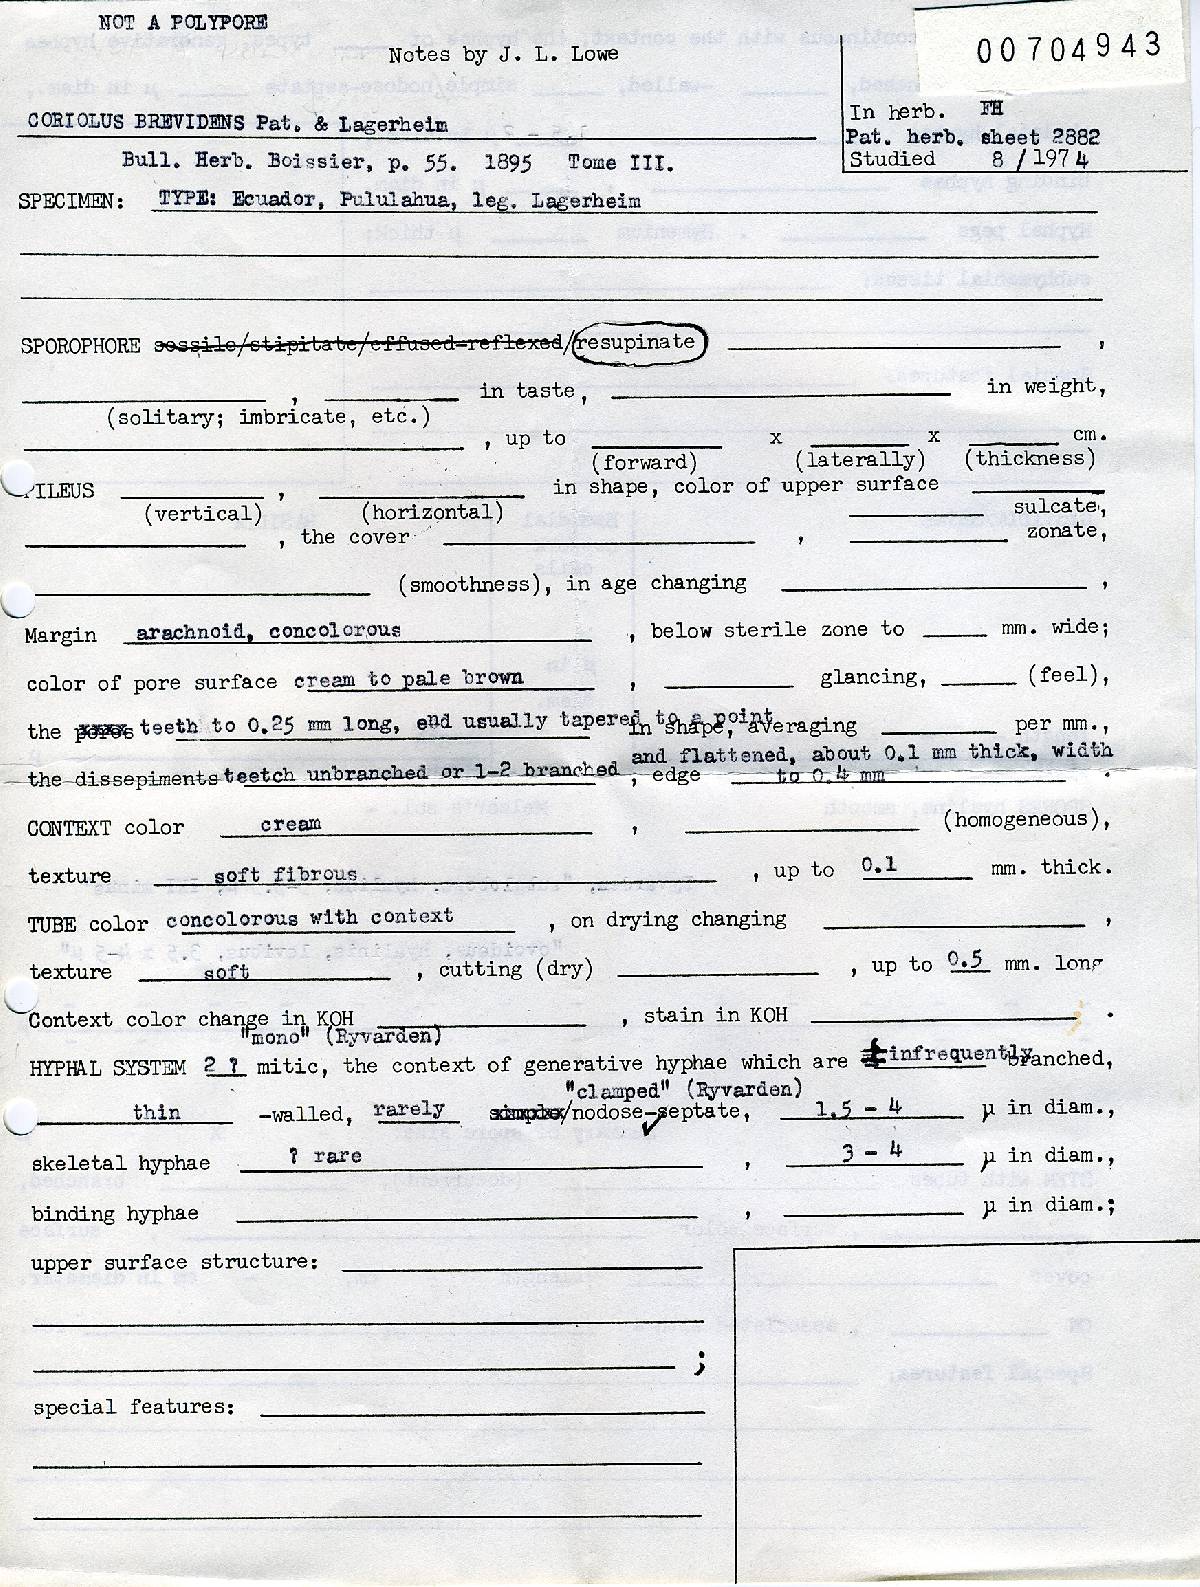 NOT A POLYPORE
Notes by J. L. Lowe
00704943
In herb. FH
CORIOLUS BREVIDENS Pat. & Lagerheim
Pat. herb. sheet 2882
Bull. Herb. Boissier, p. 55. 1895 Tome III.
Studied 8/1974
SPECIMEN: TYPE: Ecuador, Pululahua, leg. Lagerheim
SPOROPHORE sessile/stipitate/effused-reflexed/resupinate ,
, in taste, in weight,
(solitary; imbricate, etc.)
, up to x x cm.
(forward) (laterally) (thickness)
PILEUS , in shape, color of upper surface
(vertical) (horizontal) sulcate,
, the cover , zonate,
(smoothness), in age changing ,
Margin arachnoid, concolorous , below sterile zone to mm. wide;
color of pore surface cream to pale brown , glancing, (feel),
the pores teeth to 0.25 mm long, end usually tapered to a point in shape, averaging per mm.,
and flattened, about 0.1 mm thick, width
the dissepiments teetch unbranched or 1-2 branched , edge to 0.4 mm .
CONTEXT color cream , (homogeneous),
texture soft fibrous , up to 0.1 mm. thick.
TUBE color concolorous with context , on drying changing ,
texture soft , cutting (dry) , up to 0.5 mm. long
Context color change in KOH , stain in KOH .
"mono" (Ryvarden)
HYPHAL SYSTEM 2 ? mitic, the context of generative hyphae which are infrequently branched,
"clamped" (Ryvarden)
thin -walled, rarely simple/nodose-septate, 1.5 - 4 µ in diam.,
skeletal hyphae ? rare , 3 - 4 µ in diam.,
binding hyphae , µ in diam.;
upper surface structure:
;
special features: